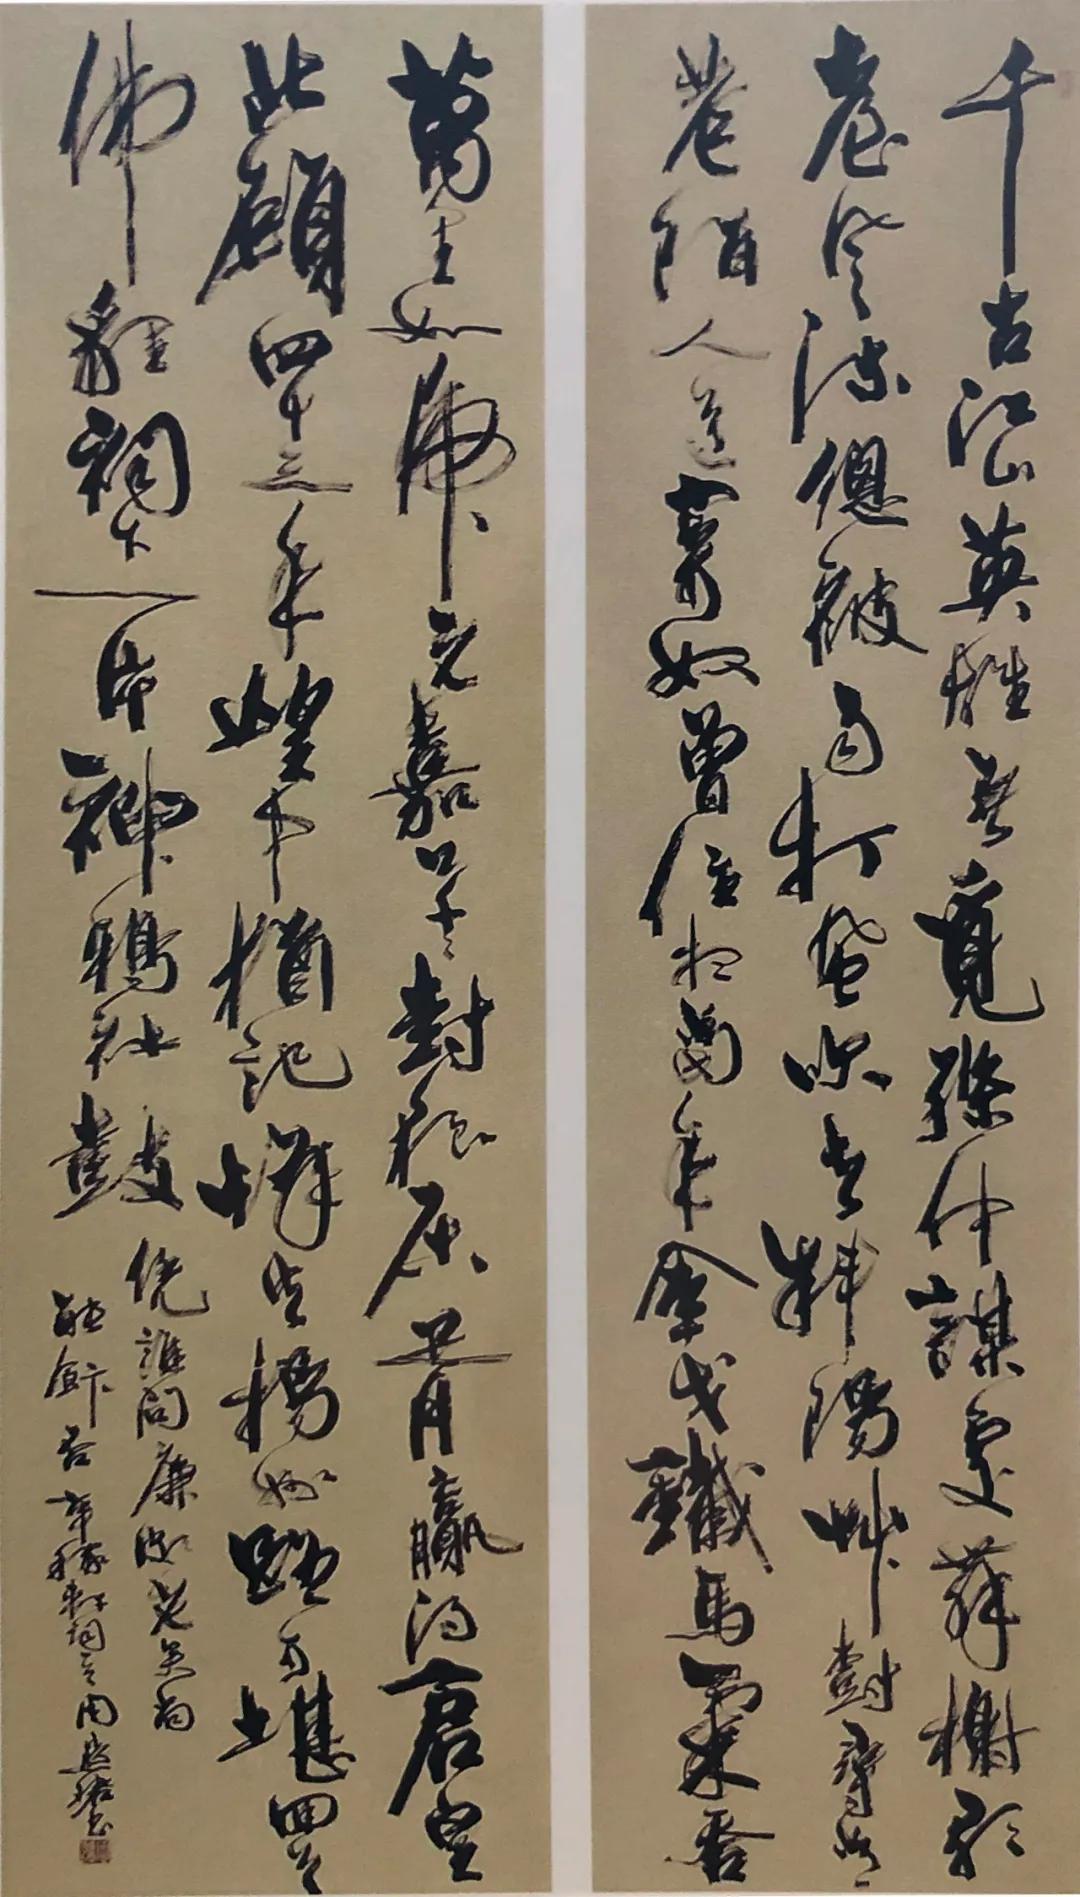 千古江山英雄無覓孫仲謀處舞榭歌
臺風流總被雨打風吹去斜陽草樹尋常
巷陌人道寄奴曾住想當年金戈鐵馬氣吞
萬里如虎元嘉草草封狼居胥贏得倉皇
北顧四十三年望中猶記烽火揚州路可堪回首
佛貍祠下一片神鴉社鼓
憑誰問廉頗老矣尚
能飯否辛稼軒詞